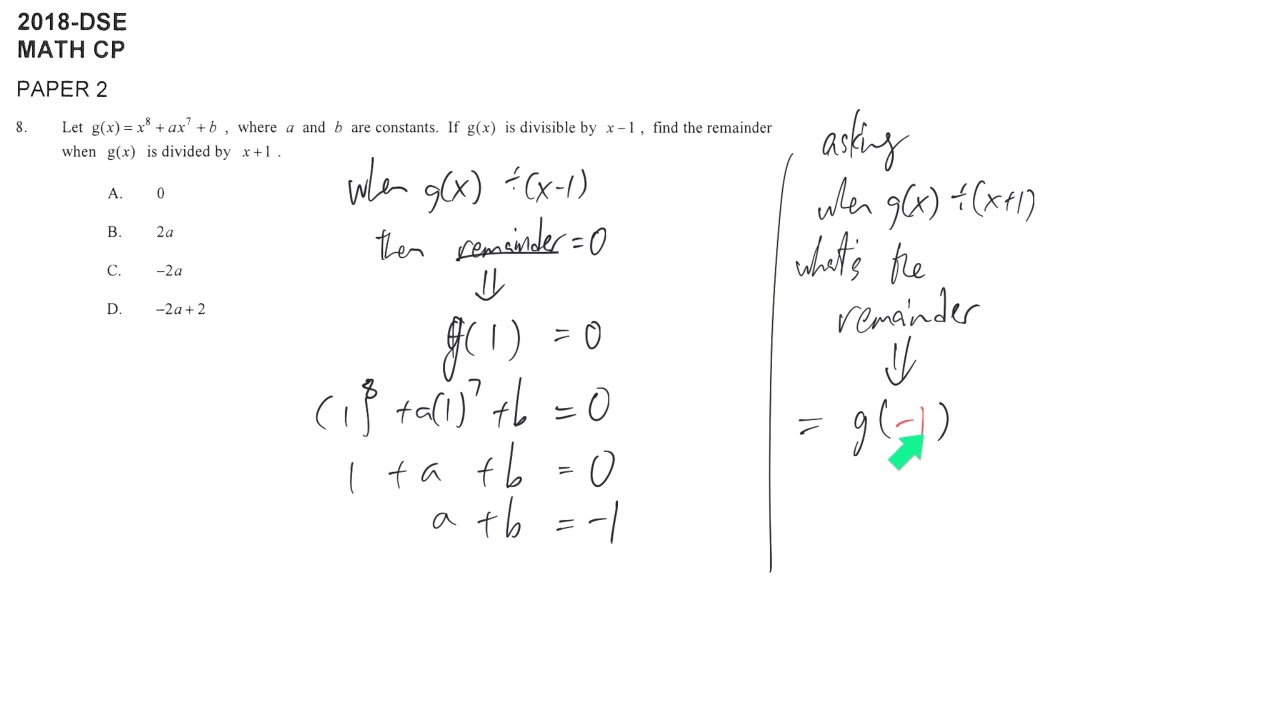 2018-DSE
MATH CP
PAPER 2
8. Let g(x) = x⁸ + ax⁷ + b , where a and b are constants. If g(x) is divisible by x−1 , find the remainder
when g(x) is divided by x+1 .
A. 0
B. 2a
C. −2a
D. −2a+2
when g(x) ÷(x-1)
then remainder = 0
⇓
g(1) = 0
(1)⁸ +a(1)⁷ +b = 0
1 + a + b = 0
a + b = -1
asking
when g(x) ÷(x+1)
what's the
remainder
⇓
= g(-1)